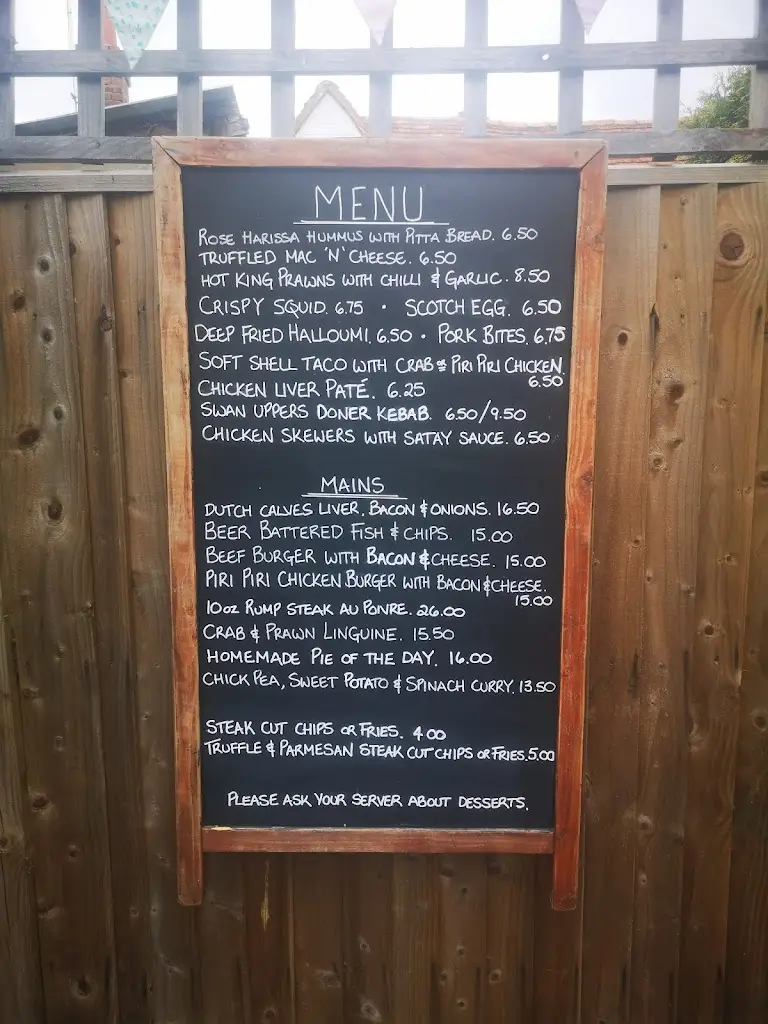 MENU
ROSE HARISSA HUMMUS WITH PITTA BREAD. 6.50
TRUFFLED MAC 'N' CHEESE. 6.50
HOT KING PRAWNS WITH CHILLI & GARLIC. 8.50
CRISPY SQUID. 6.75 · SCOTCH EGG. 6.50
DEEP FRIED HALLOUMI. 6.50 · PORK BITES. 6.75
SOFT SHELL TACO WITH CRAB or PIRI PIRI CHICKEN.
6.50
CHICKEN LIVER PATÉ. 6.25
SWAN UPPERS DONER KEBAB. 6.50/9.50
CHICKEN SKEWERS WITH SATAY SAUCE. 6.50
MAINS
DUTCH CALVES LIVER, BACON & ONIONS. 16.50
BEER BATTERED FISH & CHIPS. 15.00
BEEF BURGER WITH BACON & CHEESE. 15.00
PIRI PIRI CHICKEN BURGER WITH BACON & CHEESE.
15.00
10oz RUMP STEAK AU POIVRE. 26.00
CRAB & PRAWN LINGUINE. 15.50
HOMEMADE PIE OF THE DAY. 16.00
CHICK PEA, SWEET POTATO & SPINACH CURRY. 13.50
STEAK CUT CHIPS OR FRIES. 4.00
TRUFFLE & PARMESAN STEAK CUT CHIPS OR FRIES. 5.00
PLEASE ASK YOUR SERVER ABOUT DESSERTS.